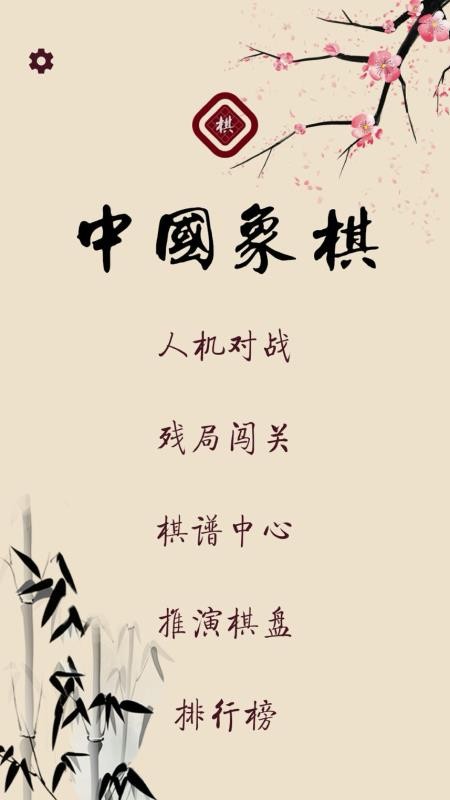 棋
中國象棋
人机对战
残局闯关
棋谱中心
推演棋盘
排行榜